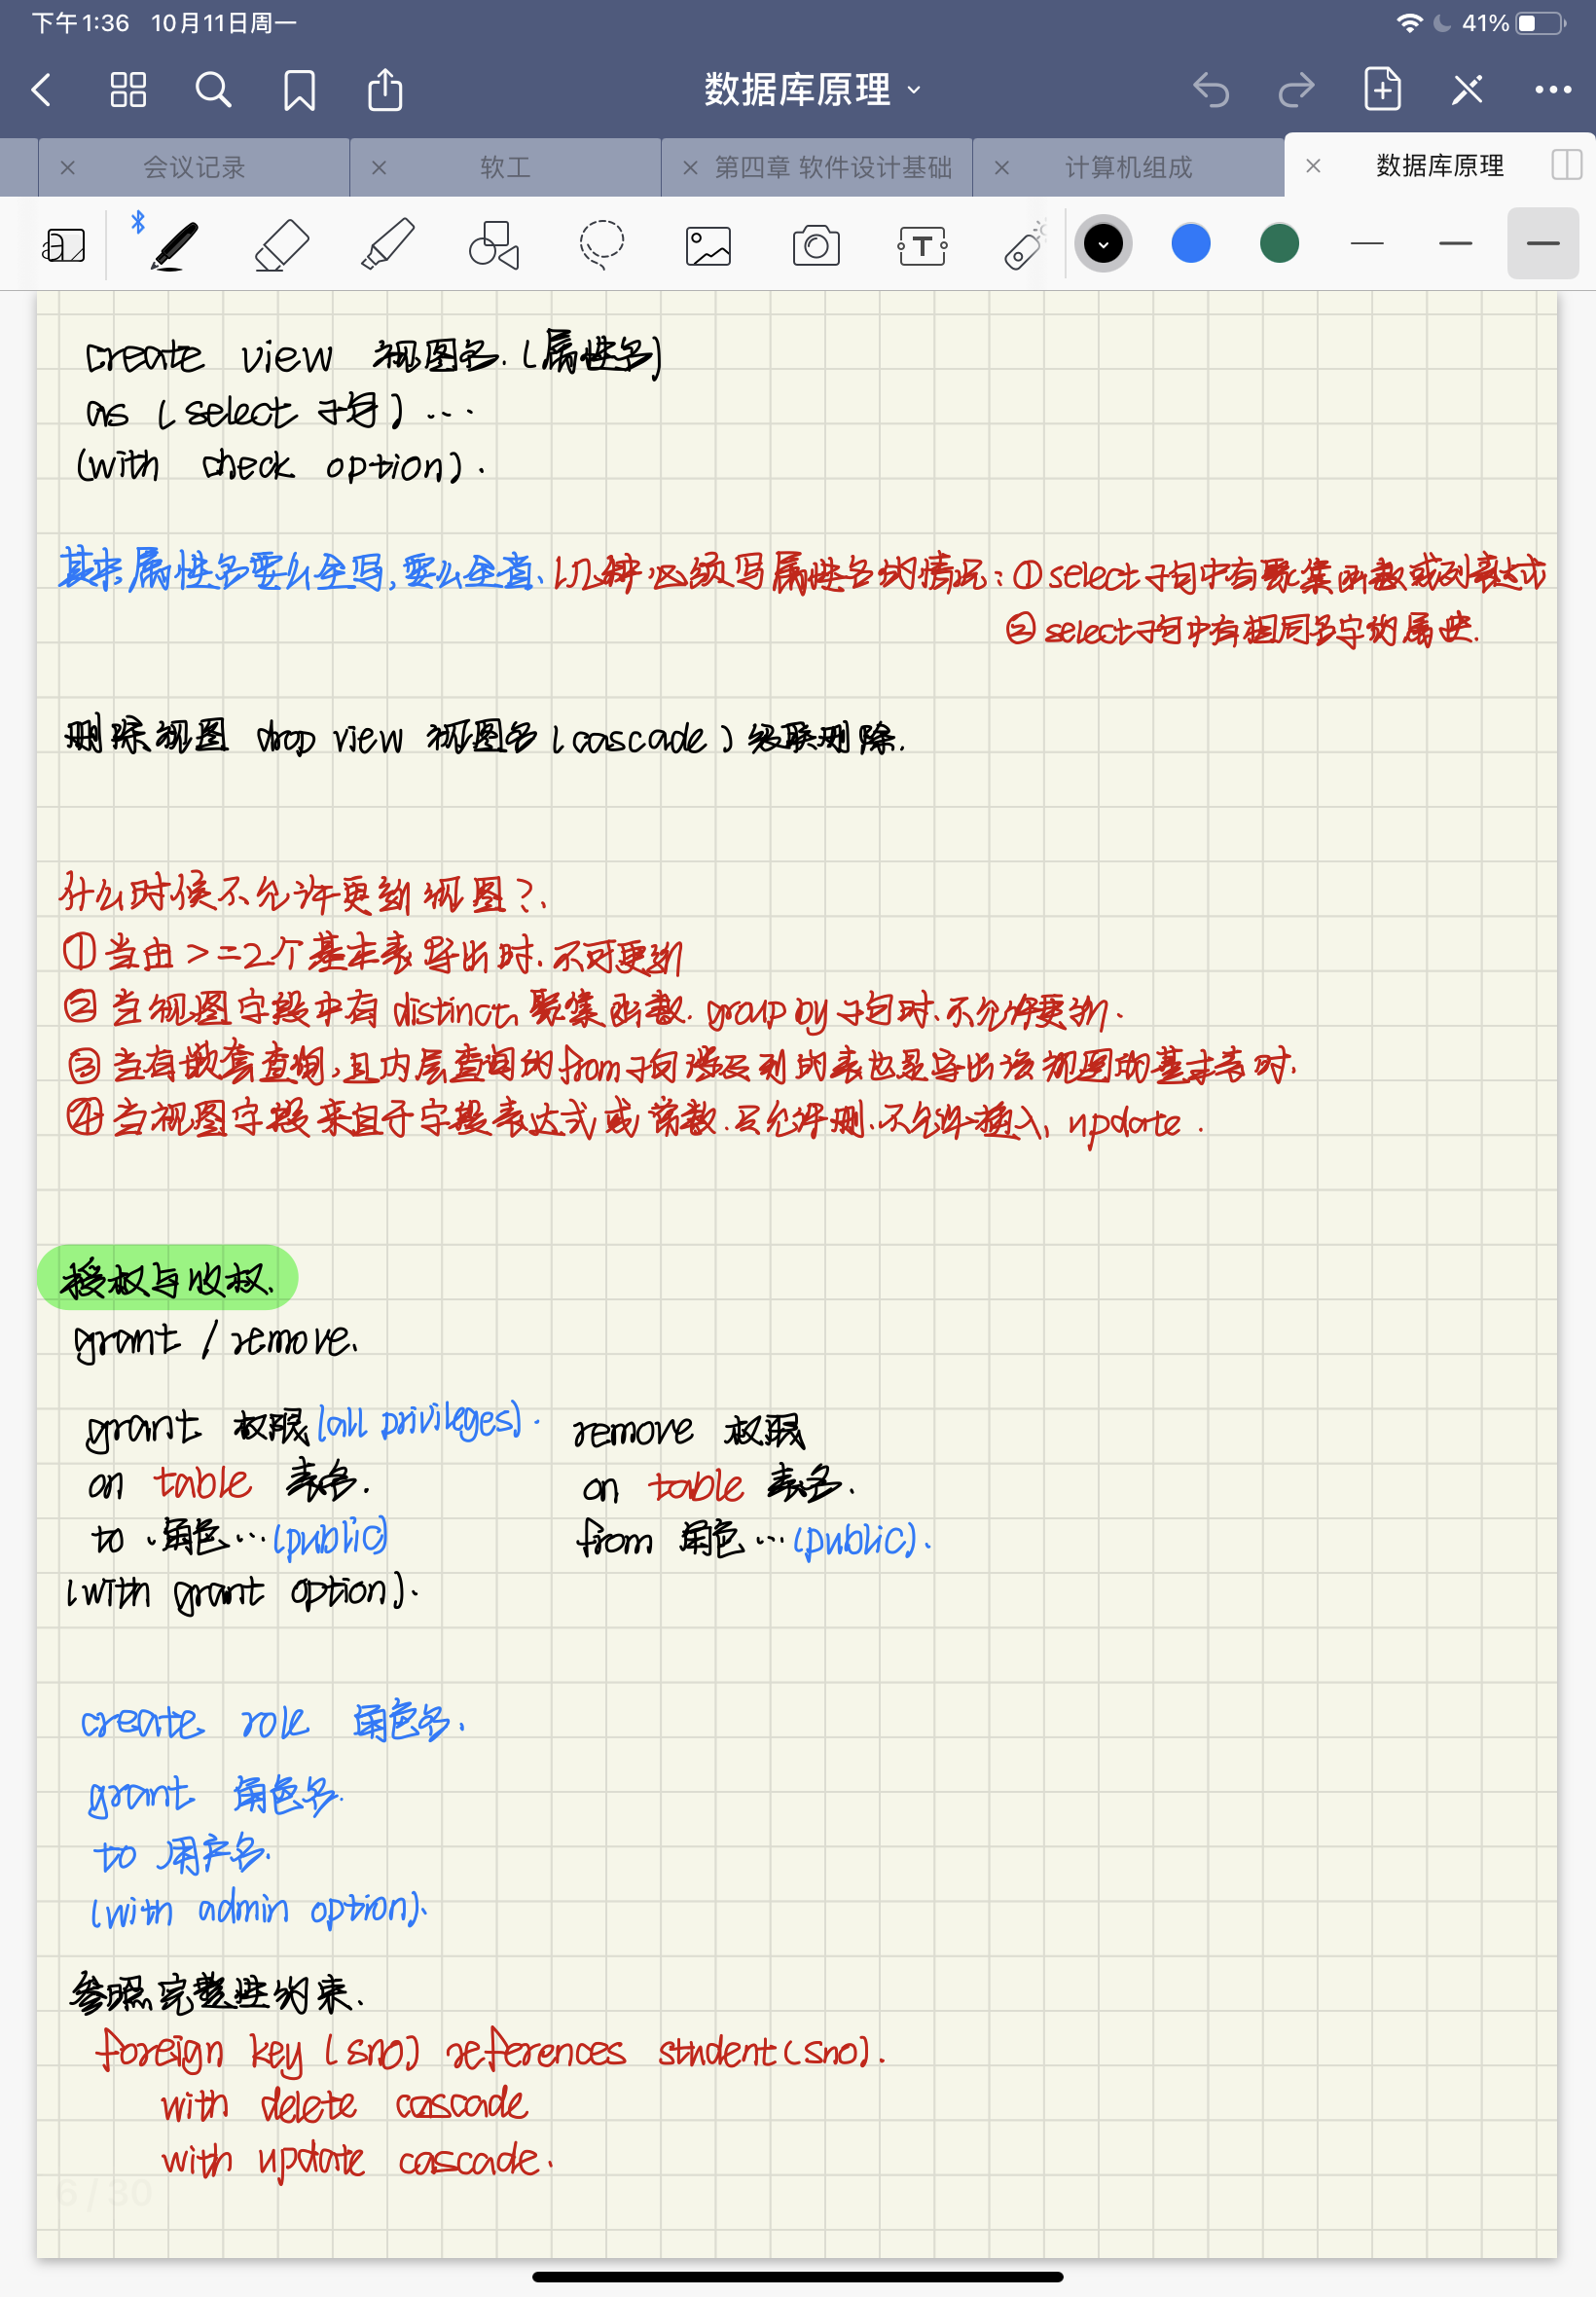 下午1:36 10月11日周一
41%
数据库原理
会议记录
软工
第四章 软件设计基础
计算机组成
数据库原理
create view 视图名.(属性名)
as (select 子句)...
(with check option).
其中,属性名要么全写,要么全省. 几种必须写属性名的情况:①select子句中有聚集函数或列表达式
②select子句中有相同名字的属性.
删除视图 drop view 视图名(cascade)级联删除.
什么时候不允许更新视图?.
①当由>=2个基本表导出时.不可更新
②当视图字段中有distinct、聚集函数.group by子句时.不允许更新.
③当有嵌套查询,且内层查询的from子句涉及到的表也是导出该视图的基本表时.
④当视图字段来自于字段表达式或常数.只允许删.不允许插入、update.
授权与收权.
grant / remove.
grant 权限(all privileges). remove 权限
on table 表名. on table 表名.
to 角色...(public) from 角色...(public).
(with grant option).
create role 角色名.
grant 角色名.
to 用户名.
(with admin option).
参照完整性约束.
foreign key (sno) references student(sno).
with delete cascade
with update cascade.
6 / 30